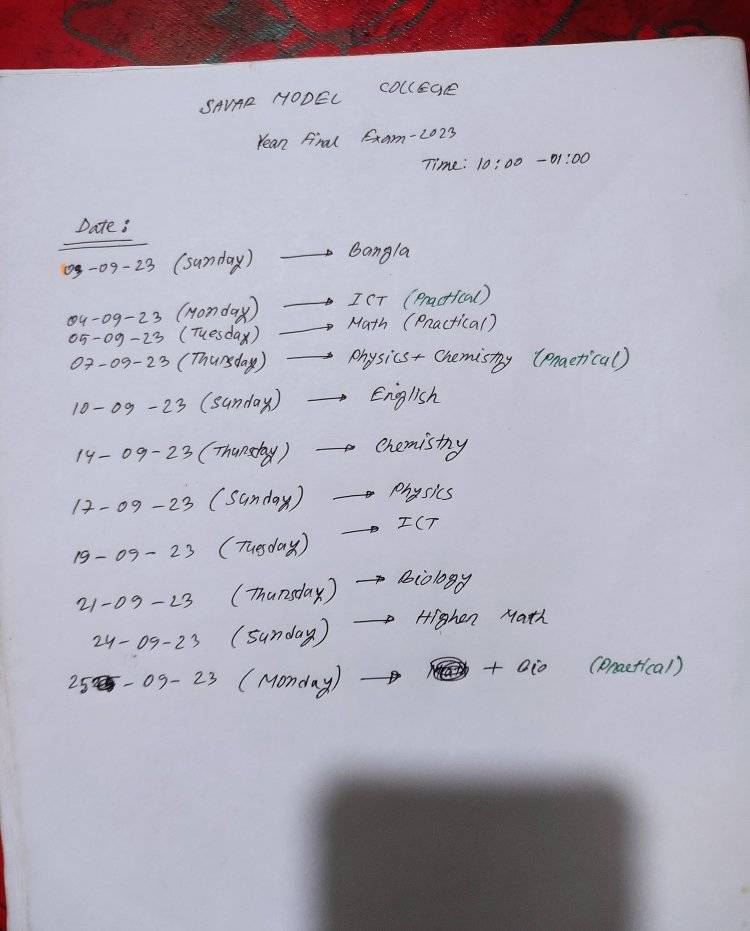 SAVAR MODEL COLLEGE
Year Final Exam-2023
Time: 10:00 -01:00
Date:
03-09-23 (Sunday) → Bangla
04-09-23 (Monday) → ICT (Practical)
05-09-23 (Tuesday) → Math (Practical)
07-09-23 (Thursday) → Physics + Chemistry (Practical)
10-09-23 (Sunday) → English
14-09-23 (Thursday) → Chemistry
17-09-23 (Sunday) → Physics
19-09-23 (Tuesday) → ICT
21-09-23 (Thursday) → Biology
24-09-23 (Sunday) → Higher Math
25-09-23 (Monday) → + Bio (Practical)